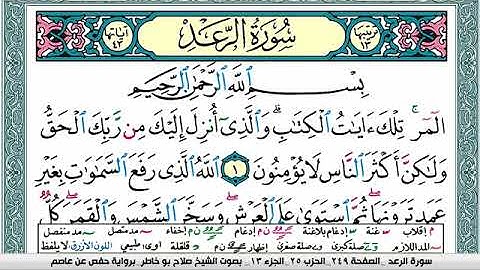 ترتيبها ١٣ سورة الرعد آياتها ٤٣
بِسْمِ ٱللَّهِ ٱلرَّحْمَٰنِ ٱلرَّحِيمِ
الٓمٓر ۚ تِلْكَ ءَايَٰتُ ٱلْكِتَٰبِ ۗ وَٱلَّذِىٓ أُنزِلَ إِلَيْكَ مِن رَّبِّكَ ٱلْحَقُّ
وَلَٰكِنَّ أَكْثَرَ ٱلنَّاسِ لَا يُؤْمِنُونَ ١ ٱللَّهُ ٱلَّذِى رَفَعَ ٱلسَّمَٰوَٰتِ بِغَيْرِ
عَمَدٍ تَرَوْنَهَا ۖ ثُمَّ ٱسْتَوَىٰ عَلَى ٱلْعَرْشِ ۖ وَسَخَّرَ ٱلشَّمْسَ وَٱلْقَمَرَ ۖ كُلٌّ
م إقلاب غنة إدغام بلاغنة ن م إدغام ن م إخفاء مد متصل مد منفصل
المد اللازم صلة كبرى صلة صغرى ن م إظهار قلقلة ا و ى طبيعي اللون الأزرق لا يلفظ
سورة الرعد . الصفحة ٢٤٩ . الحزب ٢٥ . الجزء ١٣ . بصوت الشيخ صلاح بو خاطر . برواية حفص عن عاصم